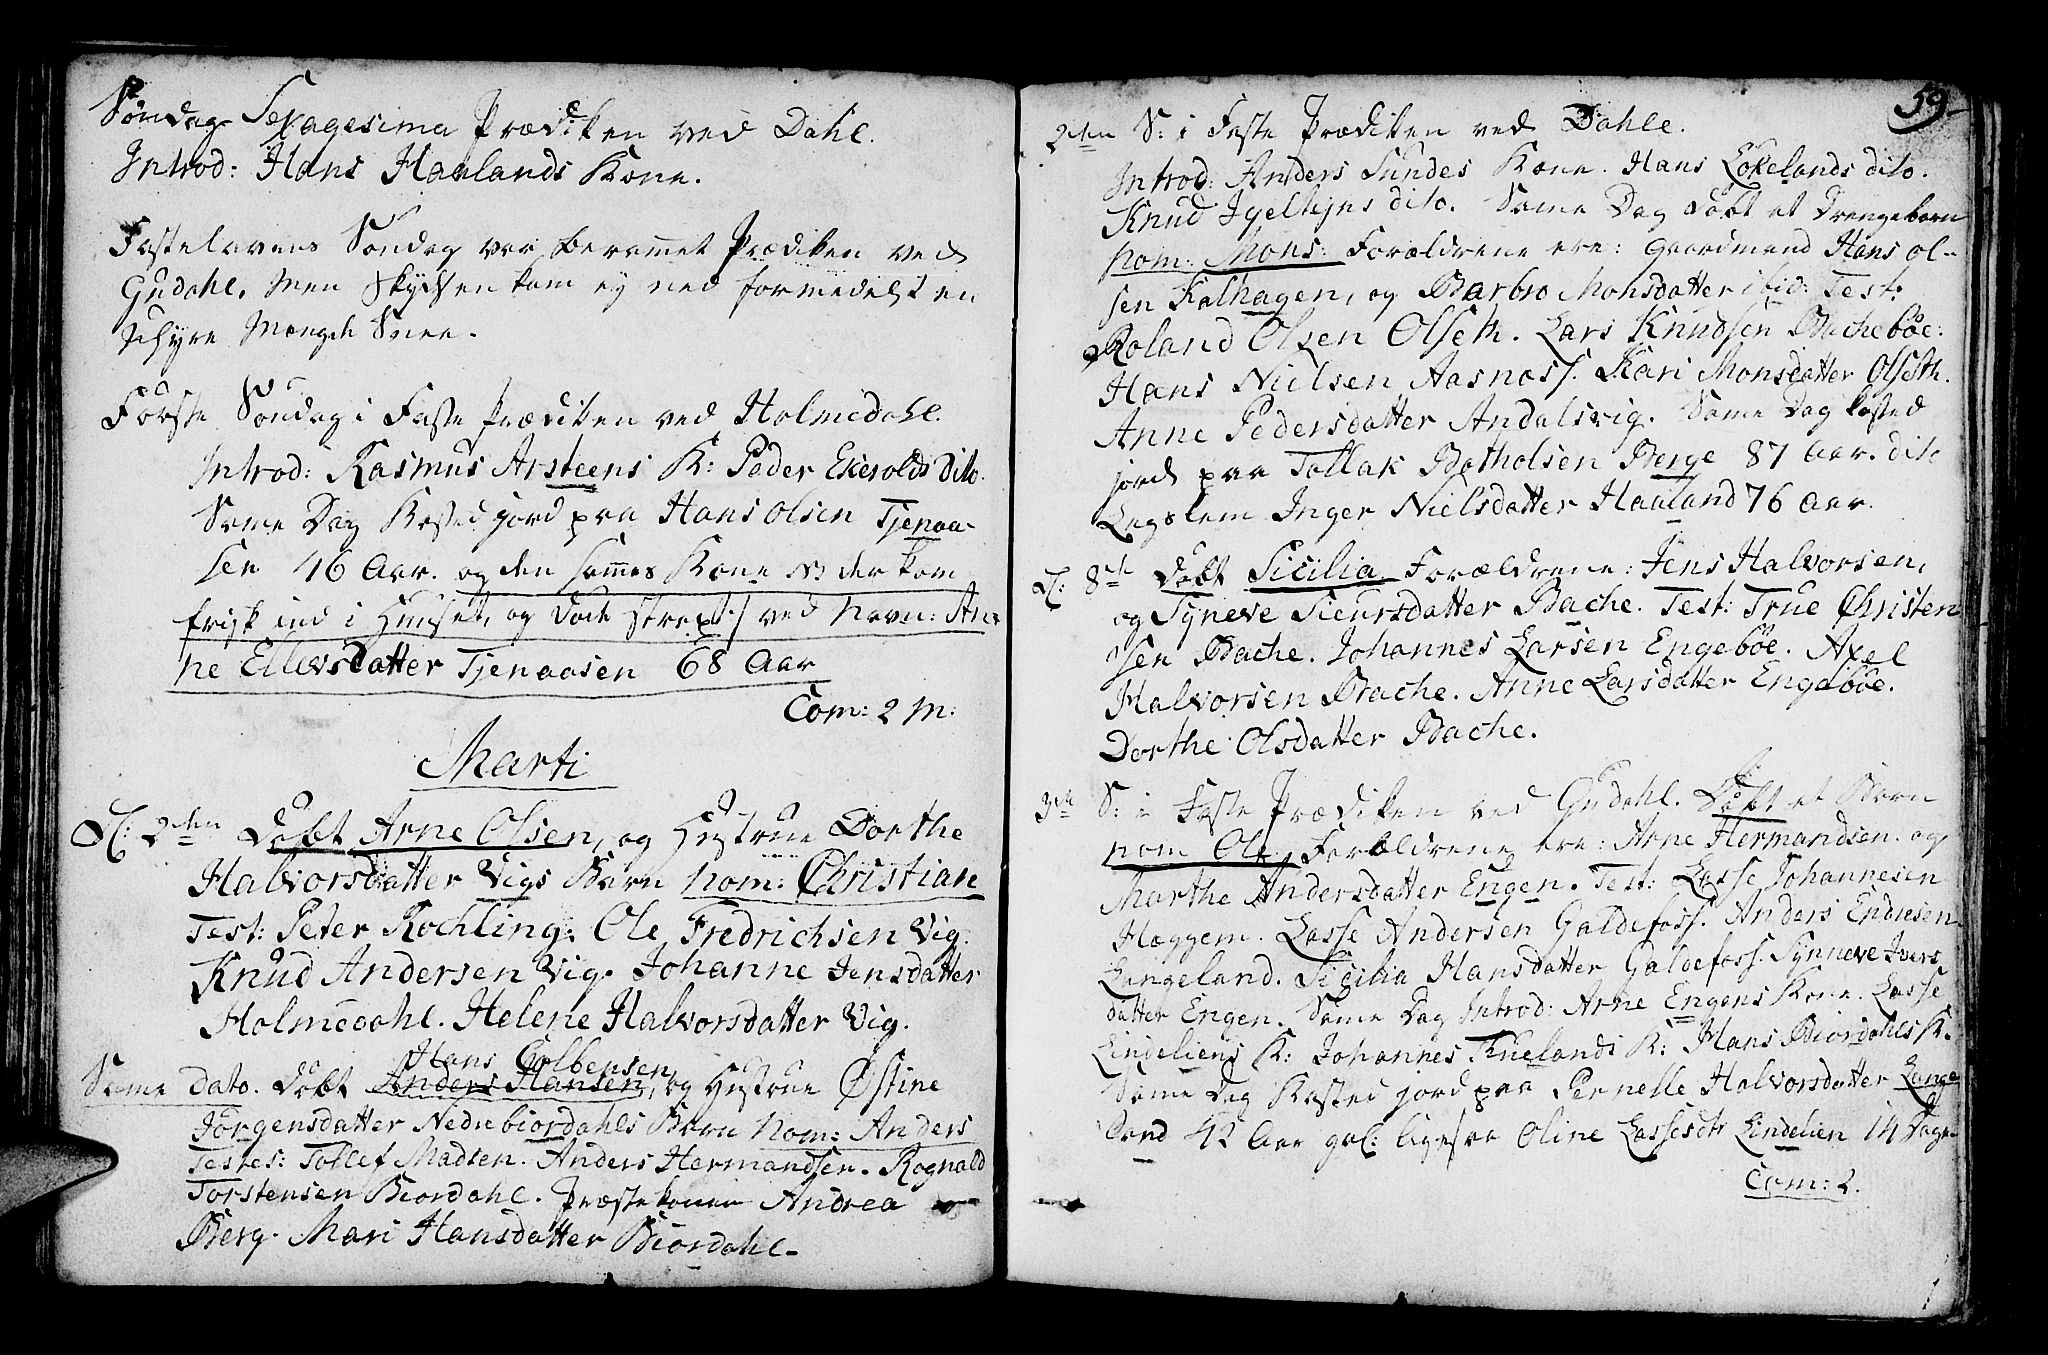 Søndag Sexagesima Prædiken ved Dahl.
Introd: Hans Haalands Kone.
Fastelavens Søndag var berammet Prædiken ved
Gudahl, men Skydsen kom ej ned formedelst en
uhyre Mengde Snee.
Første Søndag i Faste Prædiken ved Holmedahl.
Introd: Rasmus Arsteens K: Peder Exerolds dito.
Same Dag Kasted jord paa Hans Olsen Tjenaa-
sen 46 Aar. og den sammes Kone NB der kom
frisk ind i Huuset, og døde strax :/ ved Navn: An-
ne Ellevsdatter Tjenaasen 68 Aar
Com: 2 M:
Marti
D: 2den Døbt Arne Olsen, og Hustrue Dorthe
Halvorsdatter Vigs Barn nom: Christian
Test: Peter Rochling. Ole Fredrichsen Vig.
Knud Andersen Vig. Johanne Jensdatter
Holmedahl. Helene Halvorsdatter Vig.
Hans Colbensen
Same dato. døbt Anders Hansen, og Hustrue Østine
Jørgensdatter Nedrebiordahls Barn nom: Anders
Testes: Tollef Madsen. Anders Hermandsen. Rognald
Torstensen Biordahl. Præstekonen Andrea
Berg. Mari Hansdatter Biordahl.
59
2den S: i Faste Prædiken ved Dahle.
Introd: Anders Sundes Kone. Hans Løkelands dito.
Knud Igelhjns dito. Same Dag døbt et Drengebarn
nom: Mons: Forældrene ere: Gaardmand Hans Ol-
sen Kalhagen, og Barbro Monsdatter ibid: Test:
Roland Olsen Olseth. Lars Knudsen Bachebøe:
Hans Nielsen Aasnæss. Kari Monsdatter Olseth.
Anne Pedersdatter Andalsvig. Same Dag kasted
jord paa Tollak Batholsen Berge 87 Aar. dito
Legslem Inger Nielsdatter Haaland 76 Aar.
D: 8de Døbt Sicilia Forældrene: Jens Halvorsen,
og Syneve Siursdatter Bache. Test: True Christen
sen Bache. Johannes Larsen Engebøe. Axel
Halvorsen Bache. Anne Larsdatter Engebøe.
Dorthe Olsdatter Bache.
3de S: i Faste Prædiken ved Gudahl. Døbt et Barn
nom Ole, Forældrene ere: Arne Hermandsen og
Marthe Andersdatter Engen. Test: Lasse Johannesen
Hæggem. Lasse Andersen Galdefoss. Anders Endresen
Langeland. Sicilia Hansdatter Galdefoss. Synneve Ivers
datter Engen. Same Dag Introd: Arne Engens Kone. Lasse
Lindeliens K: Johannes Truelands K: Hans Biordahls K.
Same Dag Kasted jord paa Pernelle Halvorsdatter Lange
land 42 Aar gal: ligesaa Oline Lassesdtr Lindelien 14 Dage
Com: 2.